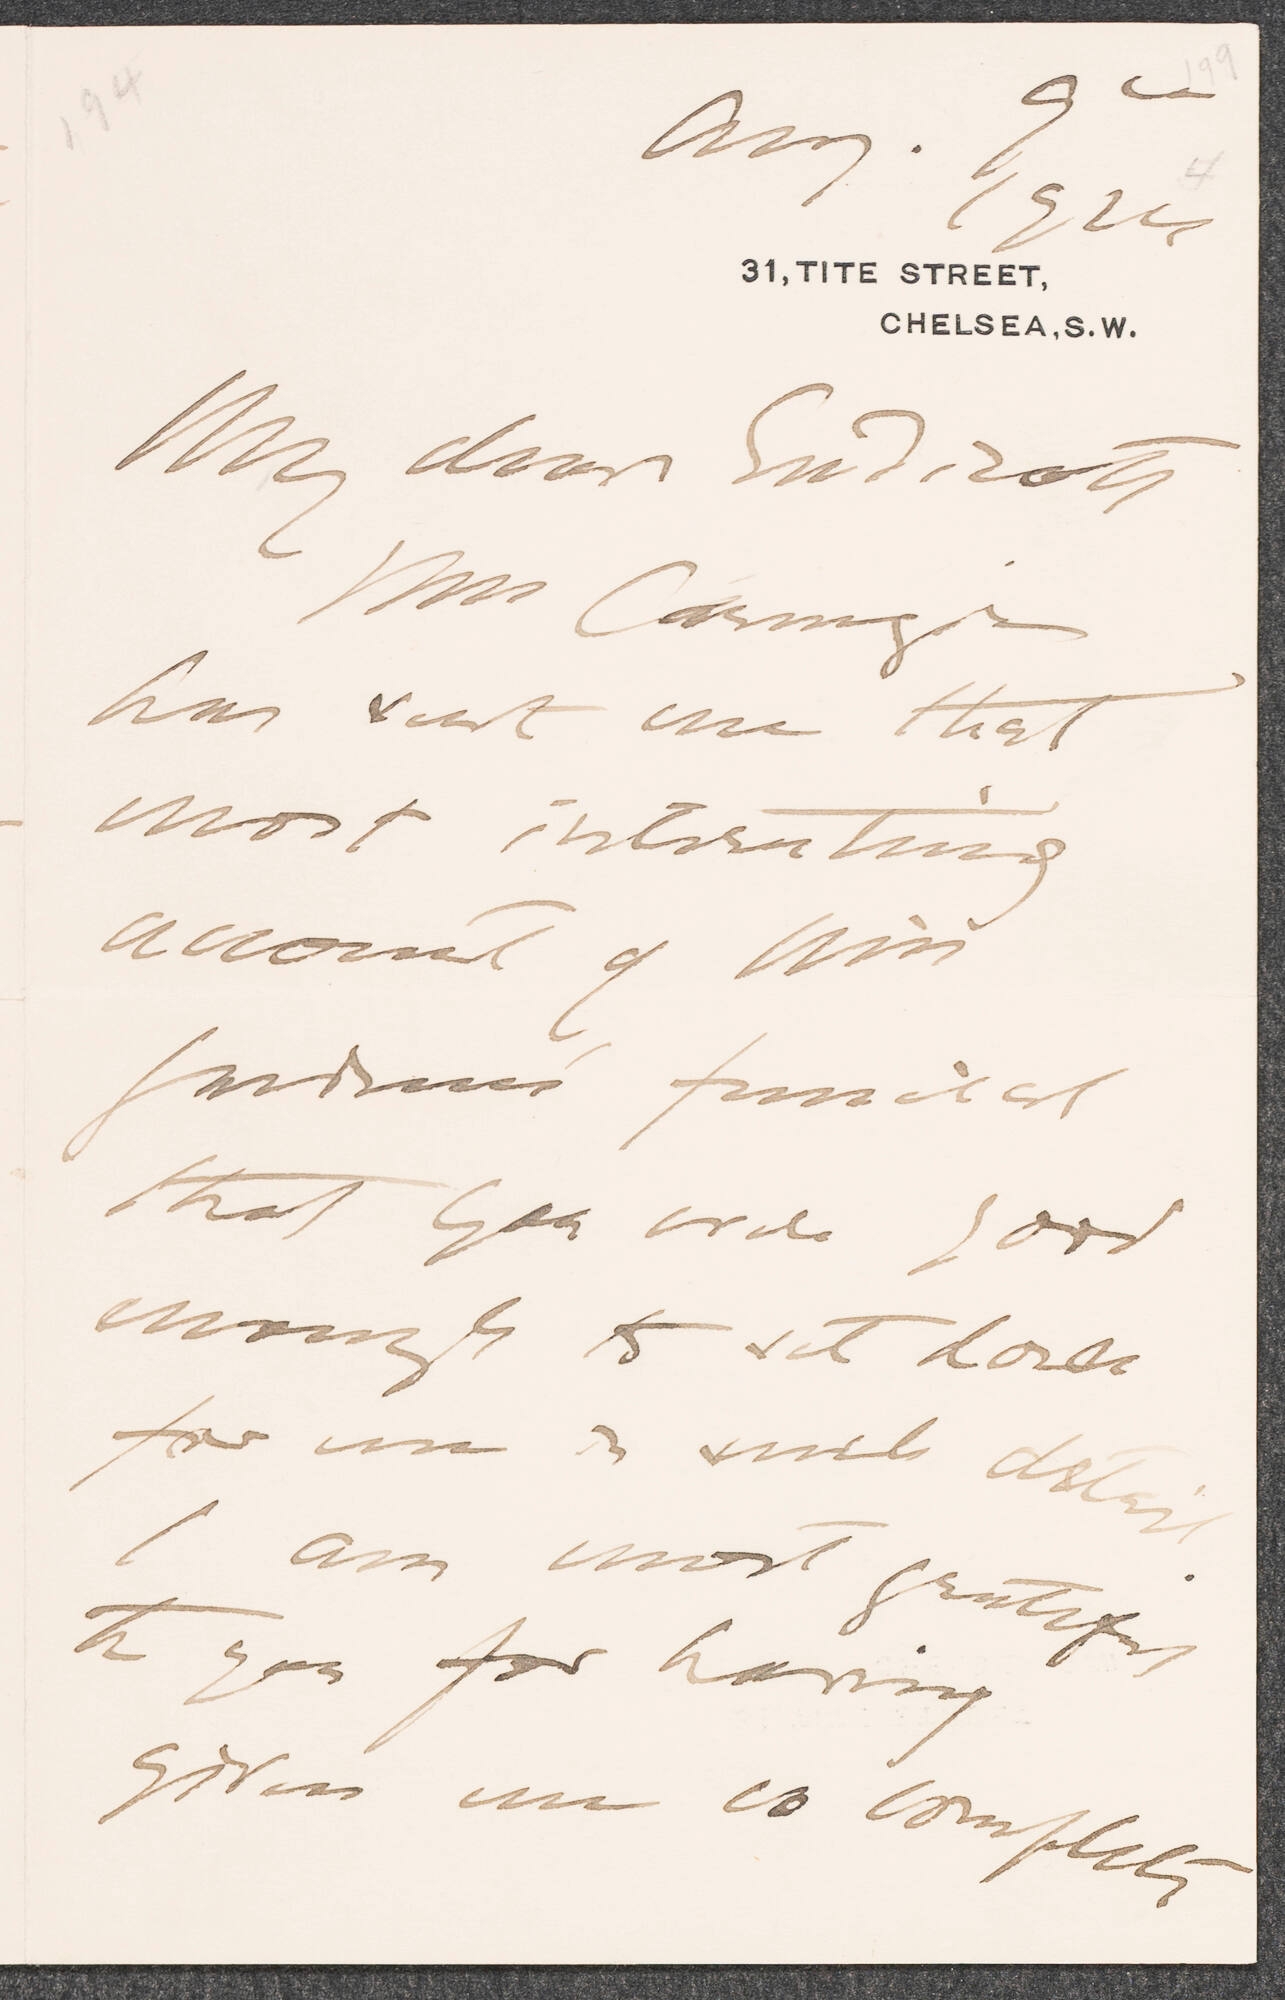 194
199
4
Aug. 9th
1924
31, TITE STREET,
CHELSEA, S.W.
My dear Endicott
Mrs Carnegie
has sent me that
most interesting
account of Mrs
Gardner's funeral
that you were good
enough to set down
for me in such detail.
I am most grateful
to you for having
given me so complete